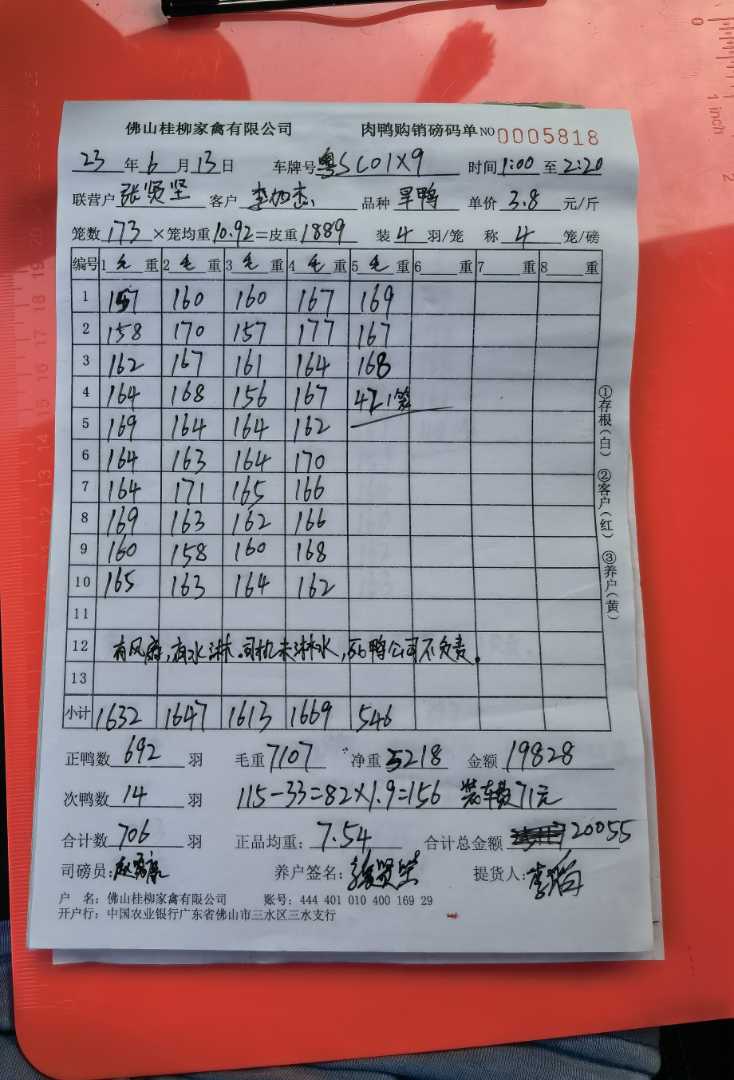 佛山桂柳家禽有限公司 肉鸭购销磅码单 NO 0005818
23 年 6 月 13 日 车牌号 粤SC01X9 时间 1:00 至 2:20
联营户 张贤坚 客户 品种 旱鸭 单价 3.8 元/斤
笼数 173 ×笼均重 10.92 =皮重 1889 装 4 羽/笼 称 4 笼/磅
编号 1 毛 重 2 毛 重 3 毛 重 4 毛 重 5 毛 重 6 重 7 重 8 重
1 157 160 160 167 169
2 158 170 157 177 167
3 162 167 161 164 168
4 164 168 156 167 42 1笼
5 169 164 164 162
6 164 163 164 170
7 164 171 165 166
8 169 163 162 166
9 160 158 160 168
10 165 163 164 162
11
12 有风扇,有水淋.司机未淋水,死鸭公司不负责。
13
小计 1632 1647 1613 1669 546
正鸭数 692 羽 毛重 7107 净重 5218 金额 19828
次鸭数 14 羽 115-33=82×1.9=156 装车费71元
合计数 706 羽 正品均重: 7.54 合计总金额 20055
司磅员: 养户签名: 张贤坚 提货人:
户 名: 佛山桂柳家禽有限公司 账号: 444 401 010 400 169 29
开户行: 中国农业银行广东省佛山市三水区三水支行
①存根(白) ②客户(红) ③养户(黄)
0
1 inch